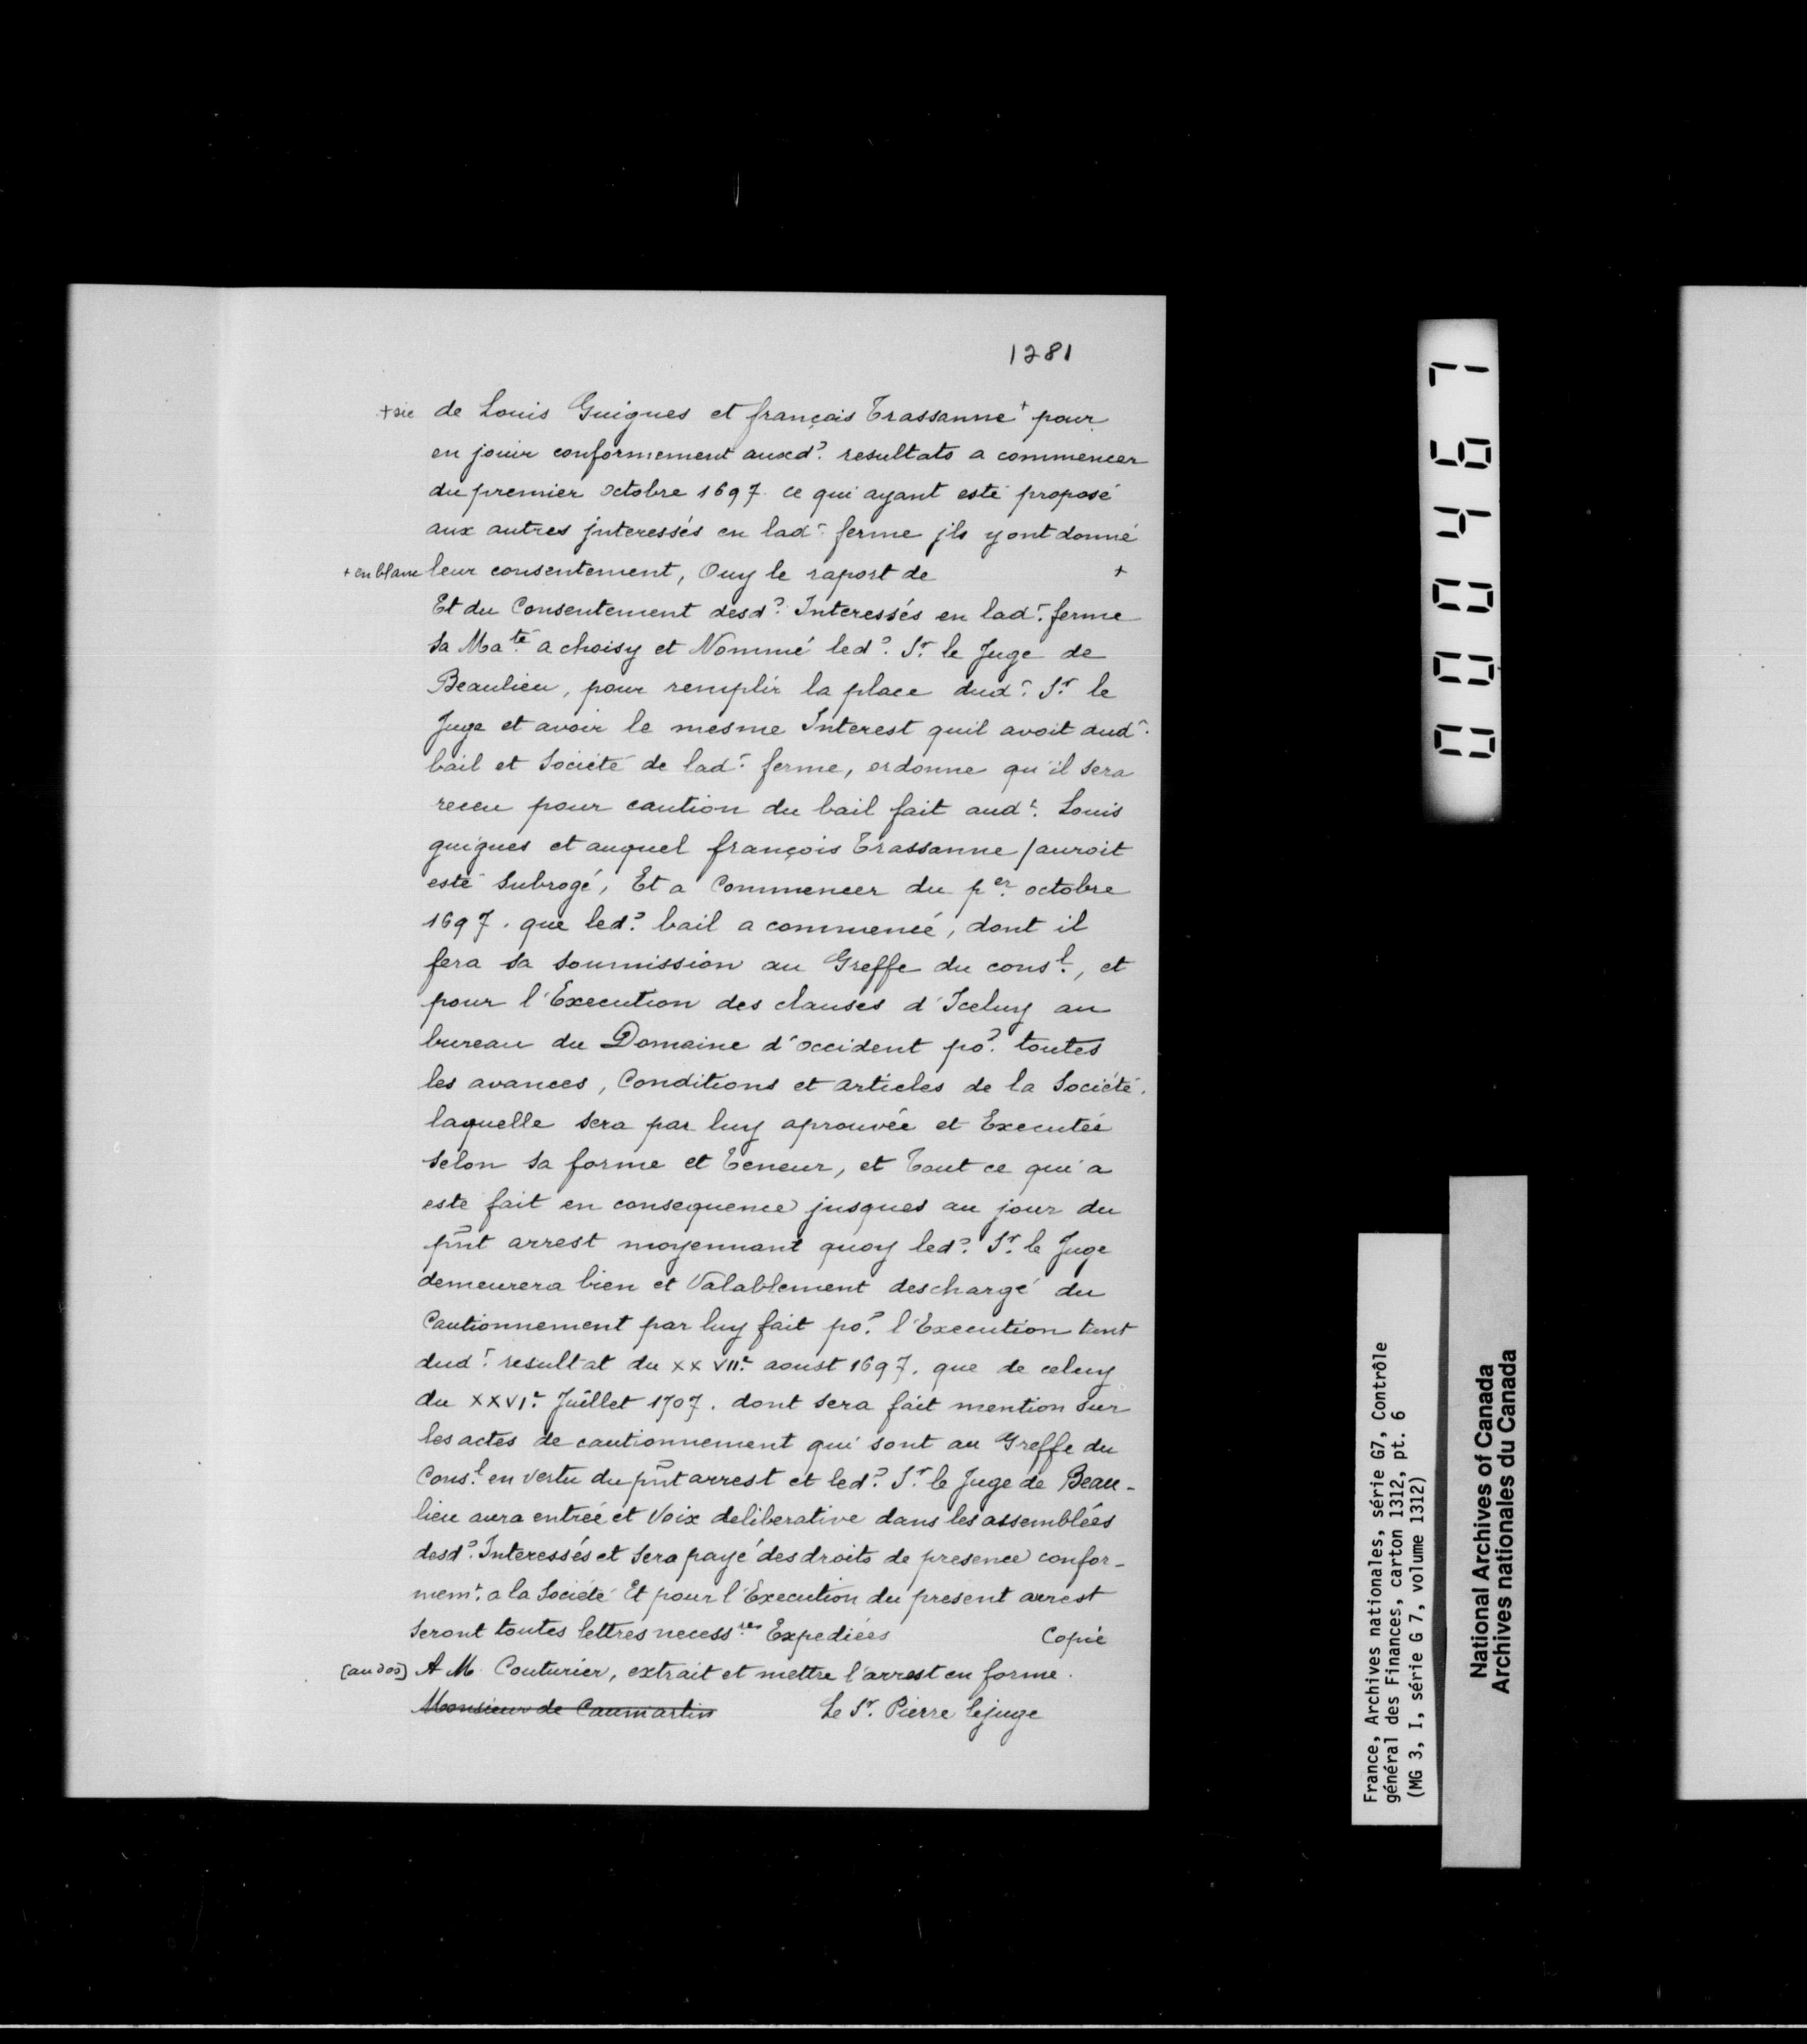 1281
+ sic de Louis Guigues et françois Trassanne + pour
en jouir conformement auxd? resultats a commencer
du premier octobre 1697. ce qui ayant esté proposé
aux autres jnteressés en lad.t ferme jls y ont donné
+ en blanc leur consentement, Ouy le raport de +
Et du Consentement desd? Interessés en lad.t ferme
sa Ma.té a choisy et Nommé led? S.r le Juge de
Beaulieu, pour remplir la place dud.t S.r le
Juge et avoir le mesme Interest quil avoit aud.t
bail et Societé de lad.t ferme, ordonne qu'il sera
receu pour caution du bail fait aud.t Louis
guigues et auquel françois Trassanne /auroit
esté subrogé, Et a Commencer du p.er octobre
1697. que led? bail a commencé, dont il
fera sa soumission au Greffe du cons.l, et
pour l'Execution des clauses d'Iceluy au
bureau du Domaine d'occident po? toutes
les avances, Conditions et articles de la Société.
laquelle sera par luy aprouvée et Executée
selon sa forme et teneur, et Tout ce qui a
este fait en consequence jusques au jour du
p̃nt arrest moyennant quoy led? S.r le Juge
demeurera bien et Valablement deschargé du
Cautionnement par luy fait po? l'Execution tant
dud.t resultat du XXVII.e aoust 1697. que de celuy
du XXVI.e Juillet 1707. dont sera fait mention sur
les actes de cautionnement qui sont au Greffe du
Cons.l en vertu du p̃nt arrest et led? S.r le Juge de Beau-
lieu aura entrée et Voix deliberative dans les assemblées
desd? Interessés et sera payé des droits de presence confor-
mem.t a la Societé Et pour l'Execution du present arrest
seront toutes lettres necess.res Expediées Copié
(au dos) A M. Couturier, extrait et mettre l'arrest en forme.
Monsieur de Caumartin Le S.r Pierre lejuge
000467
France, Archives nationales, série G7, Contrôle
général des Finances, carton 1312, pt. 6
(MG 3, I, série G 7, volume 1312)
National Archives of Canada
Archives nationales du Canada